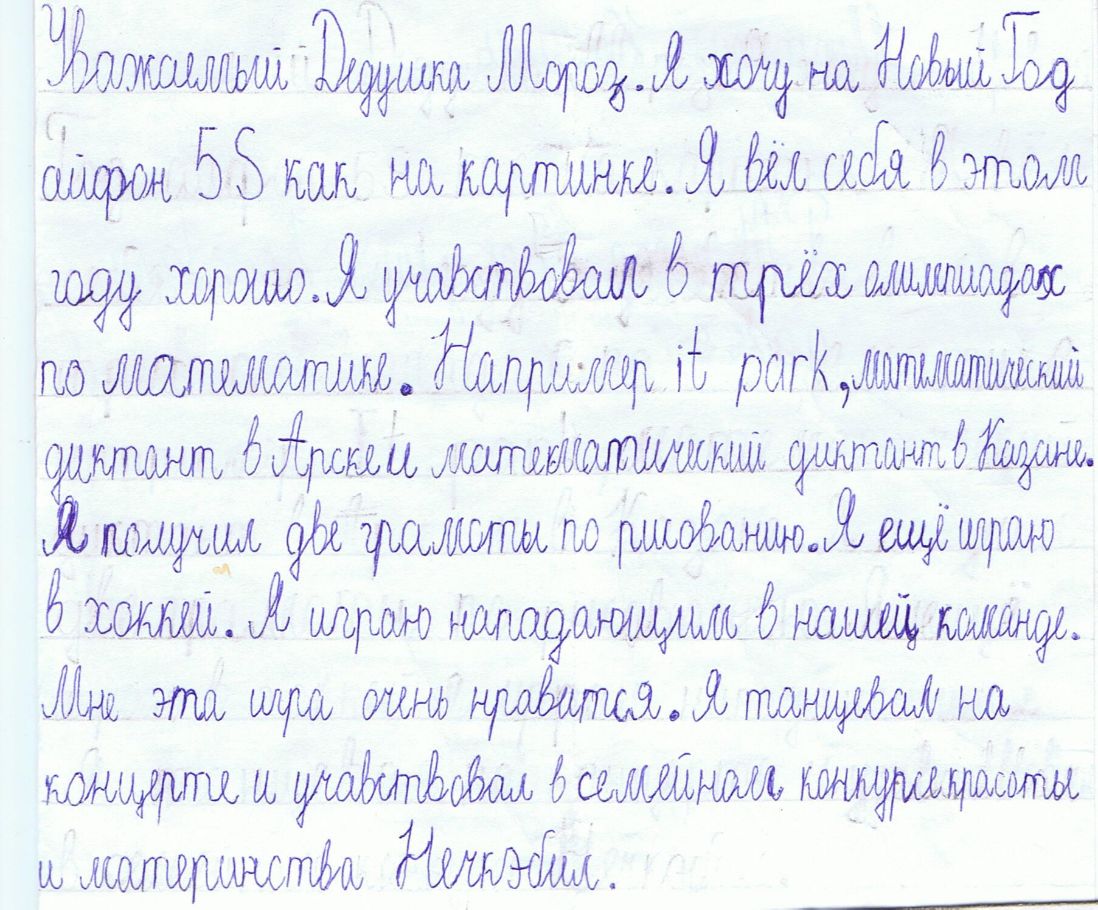 Уважаемый Дедушка Мороз. Я хочу на Новый Год
айфон 5S как на картинке. Я вёл себя в этом
году хорошо. Я учавствовал в трёх олимпиадах
по математике. Например it park, математический
диктант в Арске и математический диктант в Казане.
Я получил две грамоты по рисованию. Я ещё играю
в хоккей. Я играю нападающим в нашей команде.
Мне эта игра очень нравится. Я танцевал на
концерте и учавствовал в семейном конкурсе красоты
и материнства Нечкэбил.